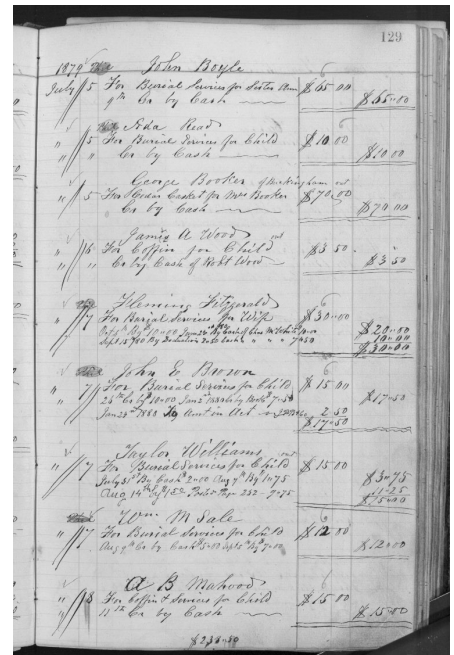 129
1879 John Boyle
July 5 For Burial Services for Sister Ann $65 00
9th Cr by Cash $65-00
Ada Read
" 5 For Burial Services for Child $10 00
" " Cr by Cash $10 00
George Booker of Buckingham
" 5 For Casket for Mrs Booker $70 00
Cr by Cash $70 00
James A Wood
" 6 For Coffin for Child $3 50
" " Cr by Cash of Robt Wood $3 50
Fleming Fitzgerald
" 7 For Burial Services for Wife $30-00
10-00 $20-00
Sept 15 80 By 10-00
$30-00
John E Brown
" 7 For Burial Services for Child $15 00
25th Cr by 10-00 Jan 2 7-50 $17-50
Jan 28th 1880 To Amt in Act 2 50
$17-50
Taylor Williams
" 7 For Burial Services for Child $15 00
July 31st By Cash 2-00 Aug 7th By 1-75 $3-75
Aug 14th Page 252 11-25
$15-00
Wm M Sale
" 7 For Burial Services for Child $12 00
Aug 9th Cr by Cash 5-00 Sept 5 By 7-00 $12-00
A B Mahood
" 8 For Coffin & Services for Child $15 00
" 11th Cr by Cash $15-00